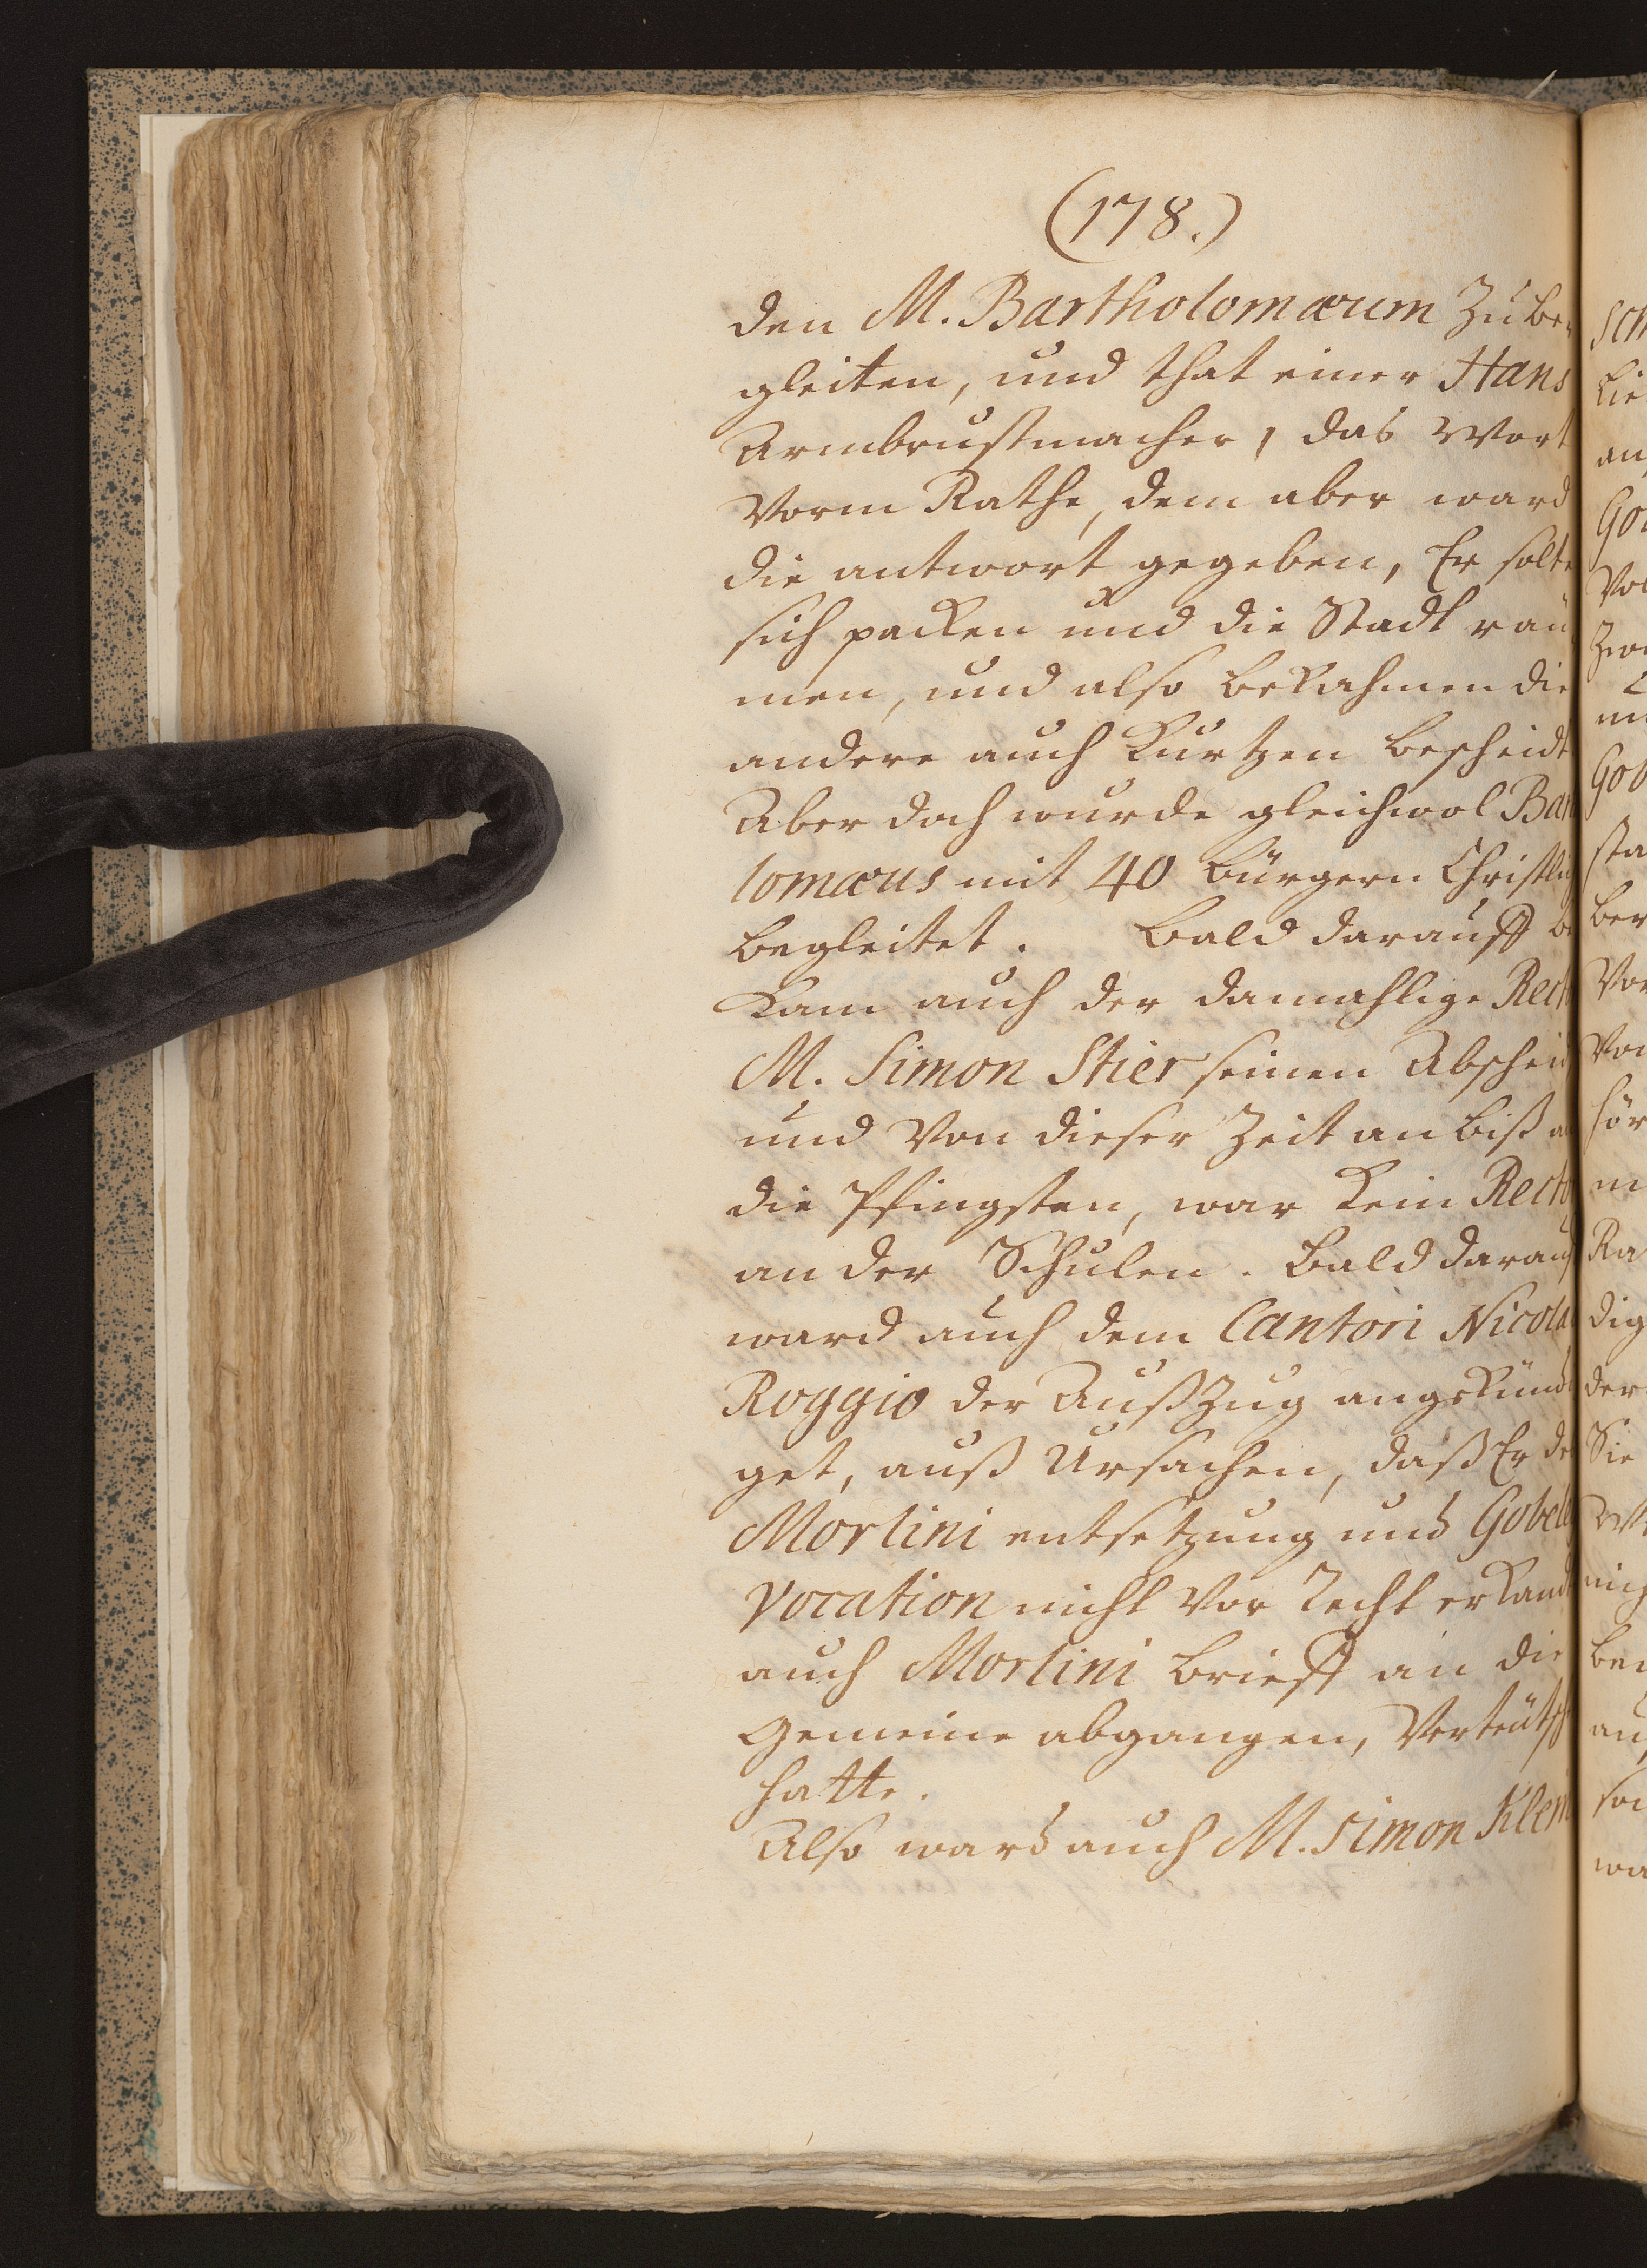 (178.)
den M. Bartholomæum Zu be
gleiten, und that einer Hans
Armbrustmacher, das Wort
Vorm Rathe, dem aber ward
die antwort gegeben, Er solte
sich packen und die Stadt räu
men, und also bekahmen die
andere auch kurtzen bescheidt
Aber doch wurde gleichwol Bar
lomæus mit 40 bürgern Christlig
begleitet. Bald darauff be
kam auch der damahlige Rect
M. Simon Stier seinen Abscheid
und Von dieser Zeit an biß a
die Pfingsten, war kein Recto
an der Schulen. Bald darauf
ward auch dem Cantori Nicola
Roggio der Außzug angekündi
get, auß Ursachen, daß Er de
Morlini entsetzung und Gobel
vocation nicht Vor Recht erkand
auch Morlini brieff an die
Gemeine abgangen, Verteütsch
hatte.
Also ward auch M. Simon Klem
Sch
Lie
an
Gob
Vol
Zwe
Gob
sta
ber
Vor
Von
hör
m
Ra
dig
der
Sie
nich
bey
au
wa